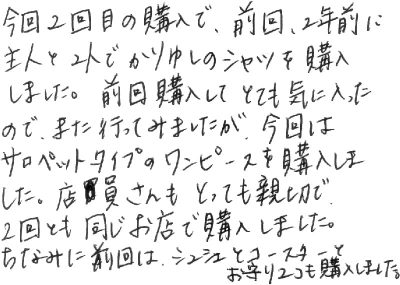 今回2回目の購入で、前回、2年前に
主人と2人でかりゆしのシャツを購入
しました。前回購入してとても気に入った
ので、また行ってみましたが、今回は
サロペットタイプのワンピースを購入しま
した。店員さんもとっても親切で、
2回とも同じお店で購入しました。
ちなみに前回は、シュシュとコースターと
お守り2コも購入しました。